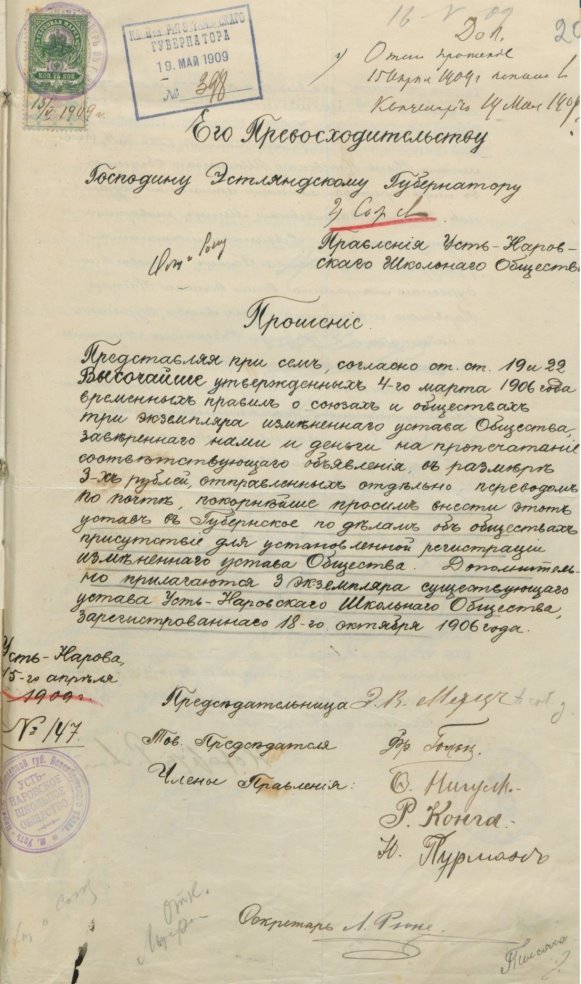 16-V-09
20
КОП. 75 КОП.
15/IV 1909 г.
КАНЦЕЛЯРІЯ ЭСТЛЯНДСКАГО
ГУБЕРНАТОРА
19. МАЙ 1909
№ 398
Его Превосходительству
Господину Эстляндскому Губернатору
Правленія Усть-Наров-
скаго Школьнаго Обществ
Прошеніе.
Представляя при семъ, согласно ст. ст. 19 и 22
Высочайше утвержденныхъ 4-го марта 1906 года
временныхъ правилъ о союзахъ и обществахъ
три экземпляра измѣненнаго устава Общества,
завѣреннаго нами и деньги на пропечатаніе
соотвѣтствующаго объявленія, въ размѣрѣ
3-хъ рублей, отправленныхъ отдѣльно переводомъ
по почтѣ, покорнѣйше просимъ внести этотъ
уставъ въ Губернское по дѣламъ объ обществахъ
присутствіе для установленной регистраціи
измѣненнаго устава Общества. Дополнитель-
но прилагаются 3 экземпляра существующаго
устава Усть-Наровскаго Школьнаго Общества,
зарегистрованнаго 18-го октября 1906 года.
Усть-Нарова,
15-го апрѣля
1909 г.
№ 147
УСТЬ-
НАРОВСКОЕ
ШКОЛЬНОЕ
ОБЩЕСТВО
Предсѣдательница
Тов. Предсѣдателя
Члены Правленія:
О. Нигул
Р. Конга
Ю. Пурманъ
Секретарь